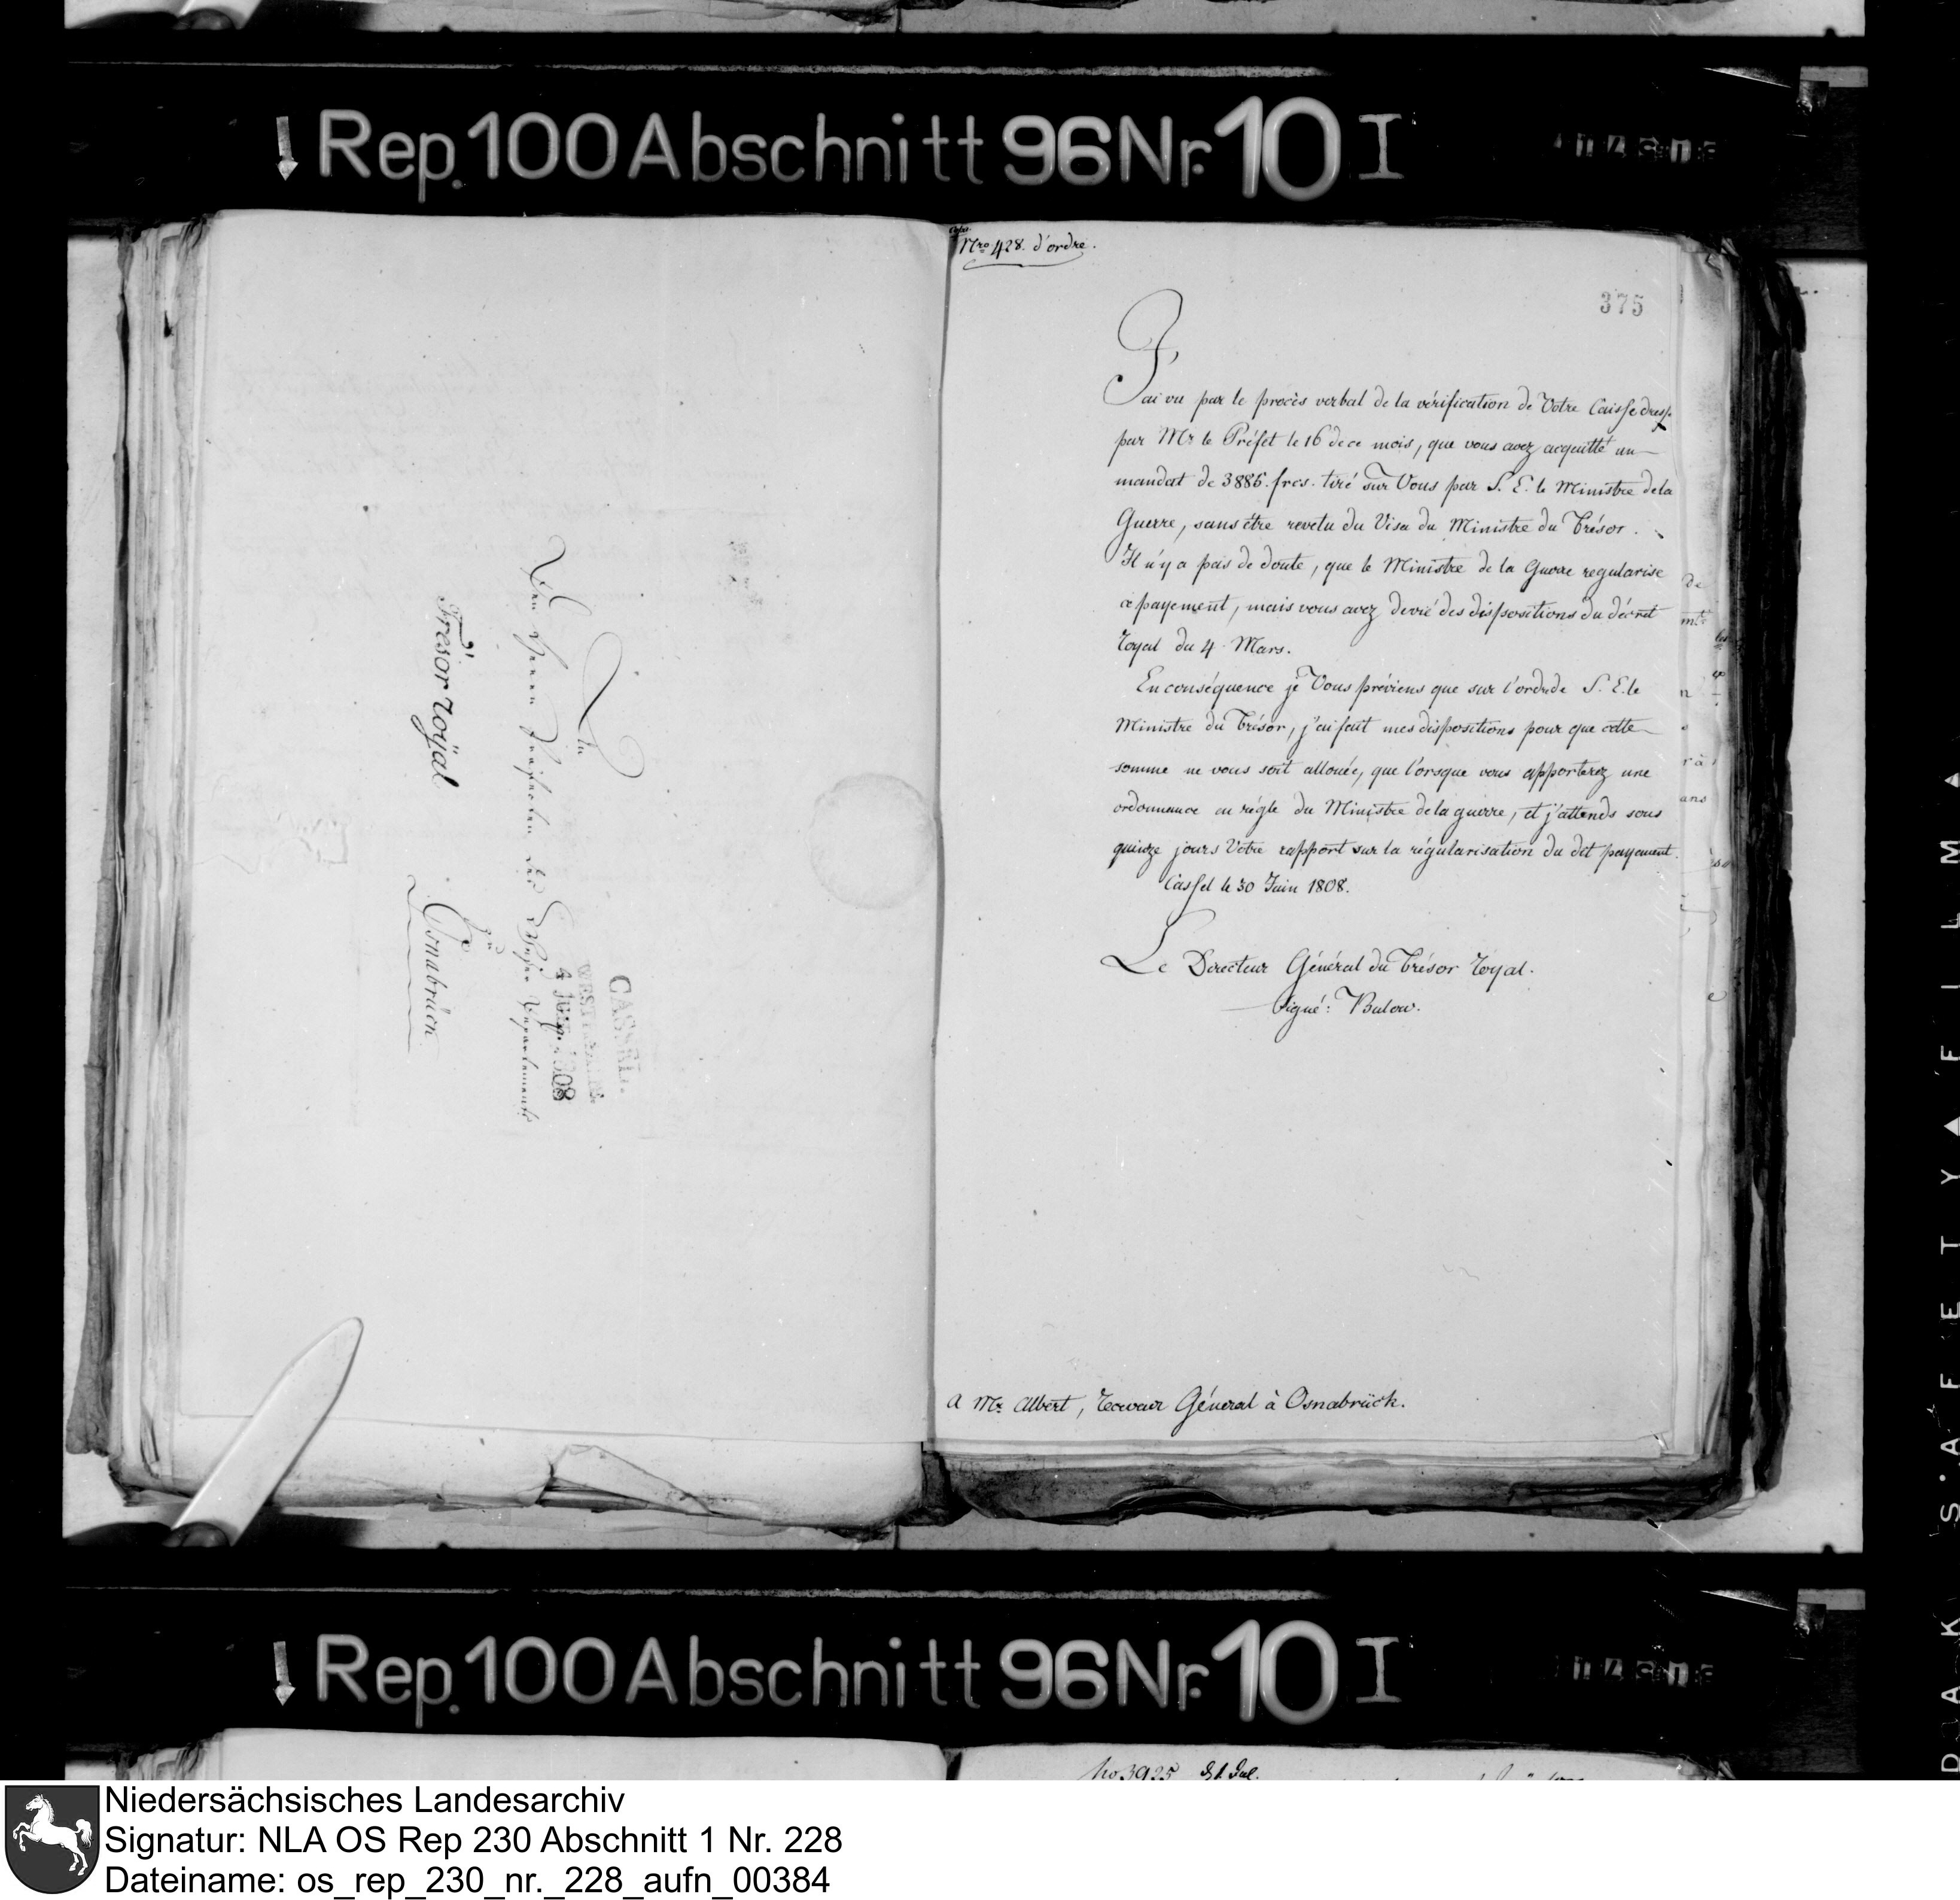 Rep. 100 Abschnitt 96 Nr. 10 I
An
Den Herrn Praefecten des Weser Departements
zu
Osnabrück
Trésor royal
CASSEL.
4 JUIL. 1808
Nro 428. d'ordre.
375
J'ai vu par le procès verbal de la vérification de Votre Caisse dressé
par Mr le Préfet le 16 de ce mois, que vous avez acquitté un
mandat de 3886. frcs. tiré sur Vous par S. E. le Ministre de la
Guerre, sans être revetu du Visa du Ministre du Trésor.
Il n'y a pas de doute, que le Ministre de la Guerre regularise
ce payement, mais vous avez devié des dispositions du décret
royal du 4 Mars.
En conséquence je Vous préviens que sur l'ordre de S. E. le
Ministre du Trésor, j'ai fait mes dispositions pour que cette
somme ne vous soit allouée, que l'orsque vous apporterez une
ordonnance en règle du Ministre de la guerre, et j'attends sous
quinze jours Votre rapport sur la régularisation du dit payement.
Cassel le 30 Juin 1808.
Le Directeur Général du Trésor royal.
Signé: Bulow.
A Mr. Albert, receveur Général à Osnabrück.
Rep. 100 Abschnitt 96 Nr. 10 I
No 3925
SAFETY FILM
Niedersächsisches Landesarchiv
Signatur: NLA OS Rep 230 Abschnitt 1 Nr. 228
Dateiname: os_rep_230_nr._228_aufn_00384